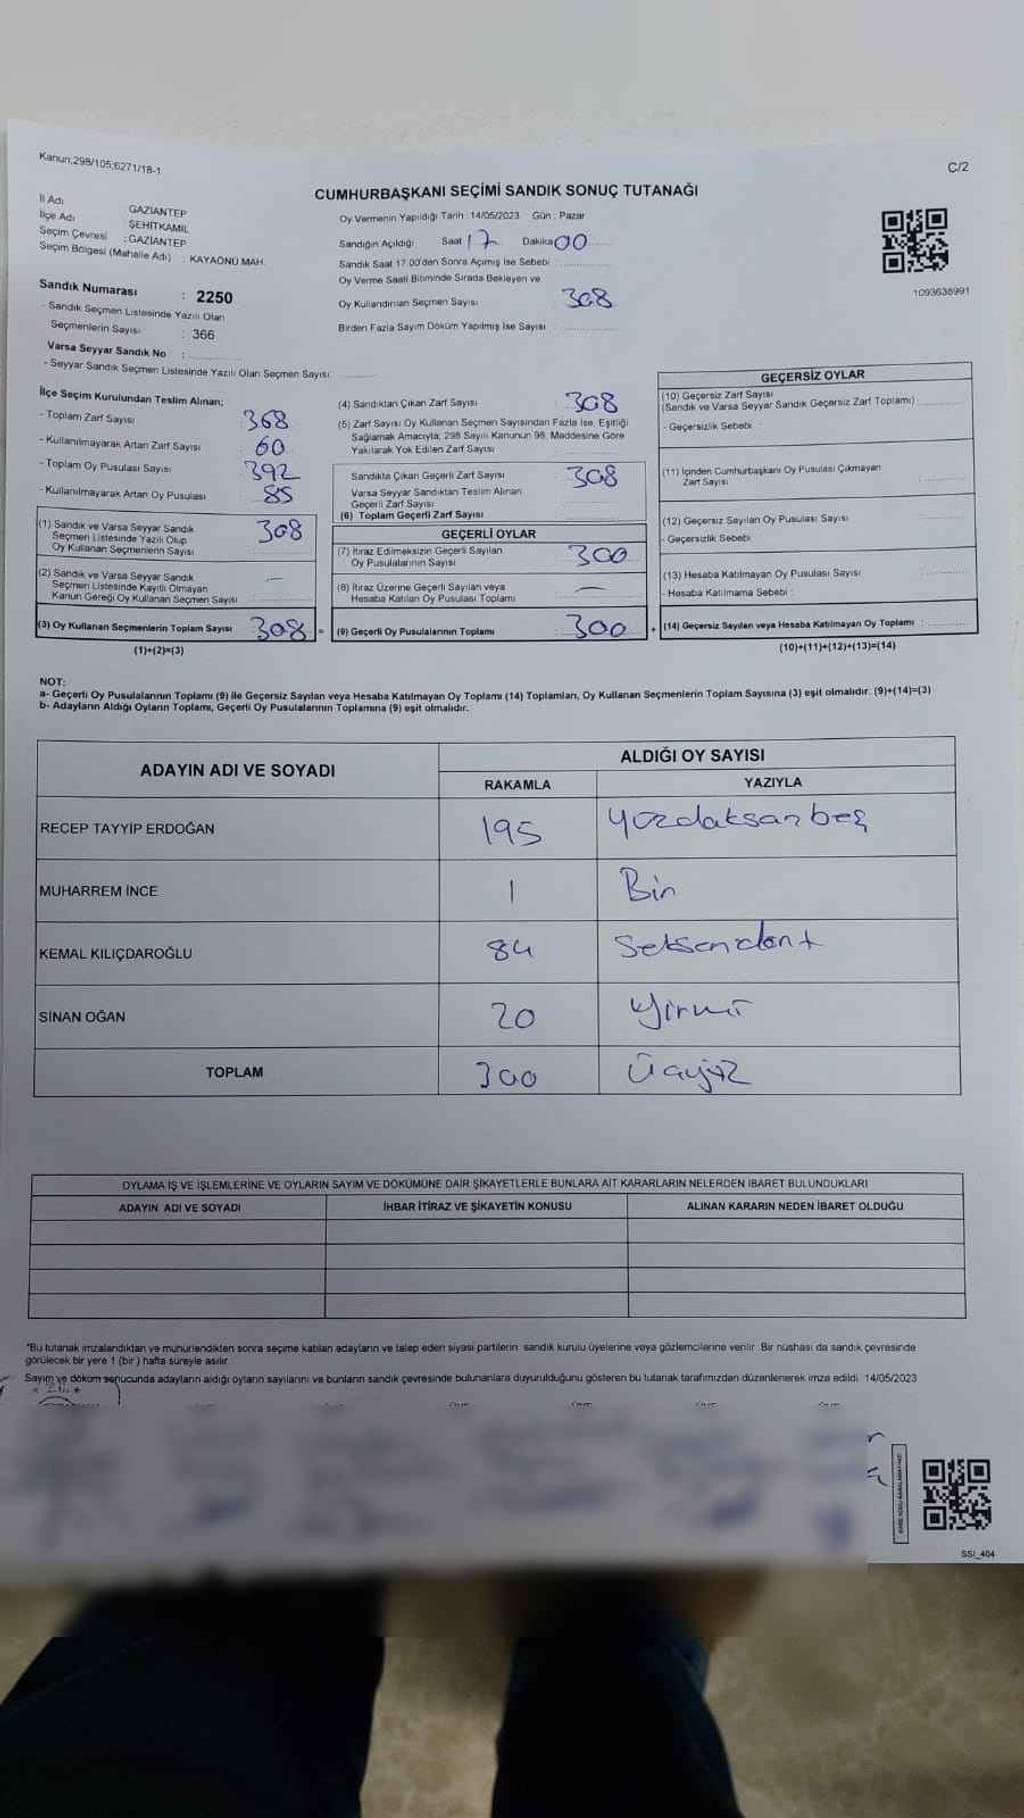 Kanun;298/105;6271/18-1
C/2
CUMHURBAŞKANI SEÇİMİ SANDIK SONUÇ TUTANAĞI
İl Adı GAZİANTEP
İlçe Adı ŞEHİTKAMİL
Seçim Çevresi : GAZİANTEP
Seçim Bölgesi (Mahalle Adı) : KAYAÖNÜ MAH.
Sandık Numarası : 2250
- Sandık Seçmen Listesinde Yazılı Olan
Seçmenlerin Sayısı : 366
Varsa Seyyar Sandık No :
- Seyyar Sandık Seçmen Listesinde Yazılı Olan Seçmen Sayısı
Oy Vermenin Yapıldığı Tarih : 14/05/2023 Gün : Pazar
Sandığın Açıldığı Saat 17 Dakika 00
Sandık Saat 17.00'den Sonra Açılmış İse Sebebi
Oy Verme Saati Bitiminde Sırada Bekleyen ve
Oy Kullandırılan Seçmen Sayısı 308
Birden Fazla Sayım Döküm Yapılmış İse Sayısı
1093636991
İlçe Seçim Kurulundan Teslim Alınan;
- Toplam Zarf Sayısı 368
- Kullanılmayarak Artan Zarf Sayısı 60
- Toplam Oy Pusulası Sayısı 392
- Kullanılmayarak Artan Oy Pusulası 85
(1) Sandık ve Varsa Seyyar Sandık
Seçmen Listesinde Yazılı Olup
Oy Kullanan Seçmenlerin Sayısı 308
(2) Sandık ve Varsa Seyyar Sandık
Seçmen Listesinde Kayıtlı Olmayan
Kanun Gereği Oy Kullanan Seçmen Sayısı —
(3) Oy Kullanan Seçmenlerin Toplam Sayısı 308 =
(1)+(2)=(3)
(4) Sandıktan Çıkan Zarf Sayısı 308
(5) Zarf Sayısı Oy Kullanan Seçmen Sayısından Fazla İse, Eşitliği
Sağlamak Amacıyla, 298 Sayılı Kanunun 98. Maddesine Göre
Yakılarak Yok Edilen Zarf Sayısı
Sandıkta Çıkan Geçerli Zarf Sayısı 308
Varsa Seyyar Sandıktan Teslim Alınan
Geçerli Zarf Sayısı
(6) Toplam Geçerli Zarf Sayısı
GEÇERLİ OYLAR
(7) İtiraz Edilmeksizin Geçerli Sayılan
Oy Pusulalarının Sayısı 300
(8) İtiraz Üzerine Geçerli Sayılan veya
Hesaba Katılan Oy Pusulası Toplamı —
(9) Geçerli Oy Pusulalarının Toplamı 300 +
GEÇERSİZ OYLAR
(10) Geçersiz Zarf Sayısı
(Sandık ve Varsa Seyyar Sandık Geçersiz Zarf Toplamı)
- Geçersizlik Sebebi :
(11) İçinden Cumhurbaşkanı Oy Pusulası Çıkmayan
Zarf Sayısı
(12) Geçersiz Sayılan Oy Pusulası Sayısı
- Geçersizlik Sebebi
(13) Hesaba Katılmayan Oy Pusulası Sayısı
- Hesaba Katılmama Sebebi :
(14) Geçersiz Sayılan veya Hesaba Katılmayan Oy Toplamı :
(10)+(11)+(12)+(13)=(14)
NOT:
a- Geçerli Oy Pusulalarının Toplamı (9) ile Geçersiz Sayılan veya Hesaba Katılmayan Oy Toplamı (14) Toplamları, Oy Kullanan Seçmenlerin Toplam Sayısına (3) eşit olmalıdır. (9)+(14)=(3)
b- Adayların Aldığı Oyların Toplamı, Geçerli Oy Pusulalarının Toplamına (9) eşit olmalıdır.
ADAYIN ADI VE SOYADI ALDIĞI OY SAYISI
RAKAMLA YAZIYLA
RECEP TAYYİP ERDOĞAN 195 yüzdaksanbeş
MUHARREM İNCE 1 Bir
KEMAL KILIÇDAROĞLU 84 Seksendört
SİNAN OĞAN 20 Yirmi
TOPLAM 300 Üçyüz
OYLAMA İŞ VE İŞLEMLERİNE VE OYLARIN SAYIM VE DÖKÜMÜNE DAİR ŞİKAYETLERLE BUNLARA AİT KARARLARIN NELERDEN İBARET BULUNDUKLARI
ADAYIN ADI VE SOYADI İHBAR İTİRAZ VE ŞİKAYETİN KONUSU ALINAN KARARIN NEDEN İBARET OLDUĞU
*Bu tutanak imzalandıktan ve mühürlendikten sonra seçime katılan adayların ve talep eden siyasi partilerin sandık kurulu üyelerine veya gözlemcilerine verilir. Bir nüshası da sandık çevresinde
görülecek bir yere 1 (bir) hafta süreyle asılır.
Sayım ve döküm sonucunda adayların aldığı oyların sayılarını ve bunların sandık çevresinde bulunanlara duyurulduğunu gösteren bu tutanak tarafımızdan düzenlenerek imza edildi. 14/05/2023
SSI_404